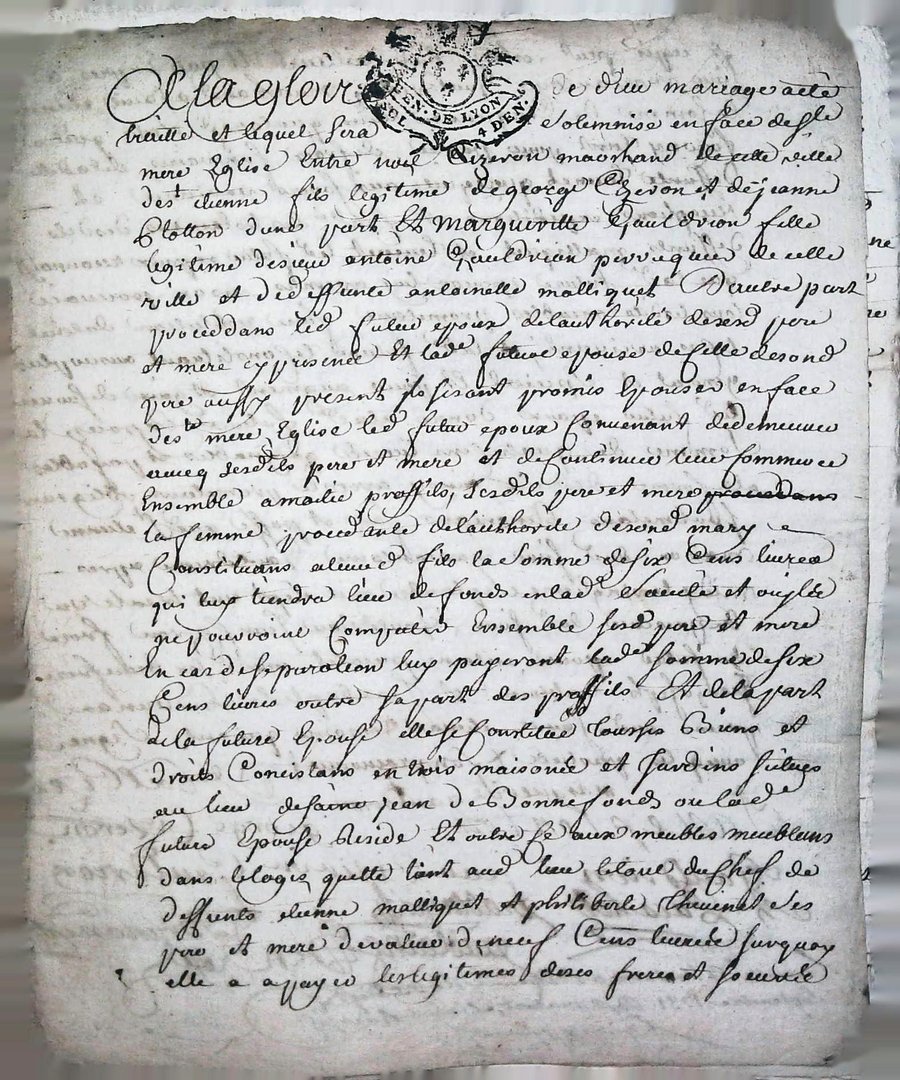 A la gloire de dieu mariage a été
GEN. DE LYON
4 DEN.
traitté et lequel sera solemnisé en face de ste
mere Eglise Entre noel Cizeron marchand de cette ville
de st etienne fils legitime de george Cizeron et de jeanne
Blotton d'une part Et Margueritte Gauldrion fille
legitime de sieur antoine Gauldrion perruquier de cette
ville et de deffunte antoinette malliquet D'autre part
procedans led futur epoux de l'authorité de sesd pere
et mere cy presence Et lad future epouse de celle de sond
pere aussy present ils se sont promis Epouser en face
de ste mere Eglise led futur epoux Convenant de demeurer
avecq sesdits pere et mere et de Continuer leur Commerce
Ensemble a moitié proffits, sesdits pere et mere procedans
la femme procedante de l'authorité de sond mary
Constituans a leurd fils la Somme de six Cens livres
qui luy tiendra lieu de fonds en lad Societé et ou ils
ne pourroint Compatir Ensemble sesd pere et mere
En cas de separation luy payeront lad somme de six
Cens livres outre sa part des proffits Et de la part
de la future Epouse elle se Constitue tous ses Biens et
droits Concistans en trois maisons et Jardins situés
au lieu de saint jean de Bonnefonds ou lad
future Epouse Reside Et outre ce aux meubles meublans
dans le logis quelle tient aud lieu le tout du Chef de
deffunts etienne malliquet et philiberte Thevenet ses
pere et mere de valeur de neuf Cens livres surquoy
elle a a payer les legitimes de ses freres et soeurs